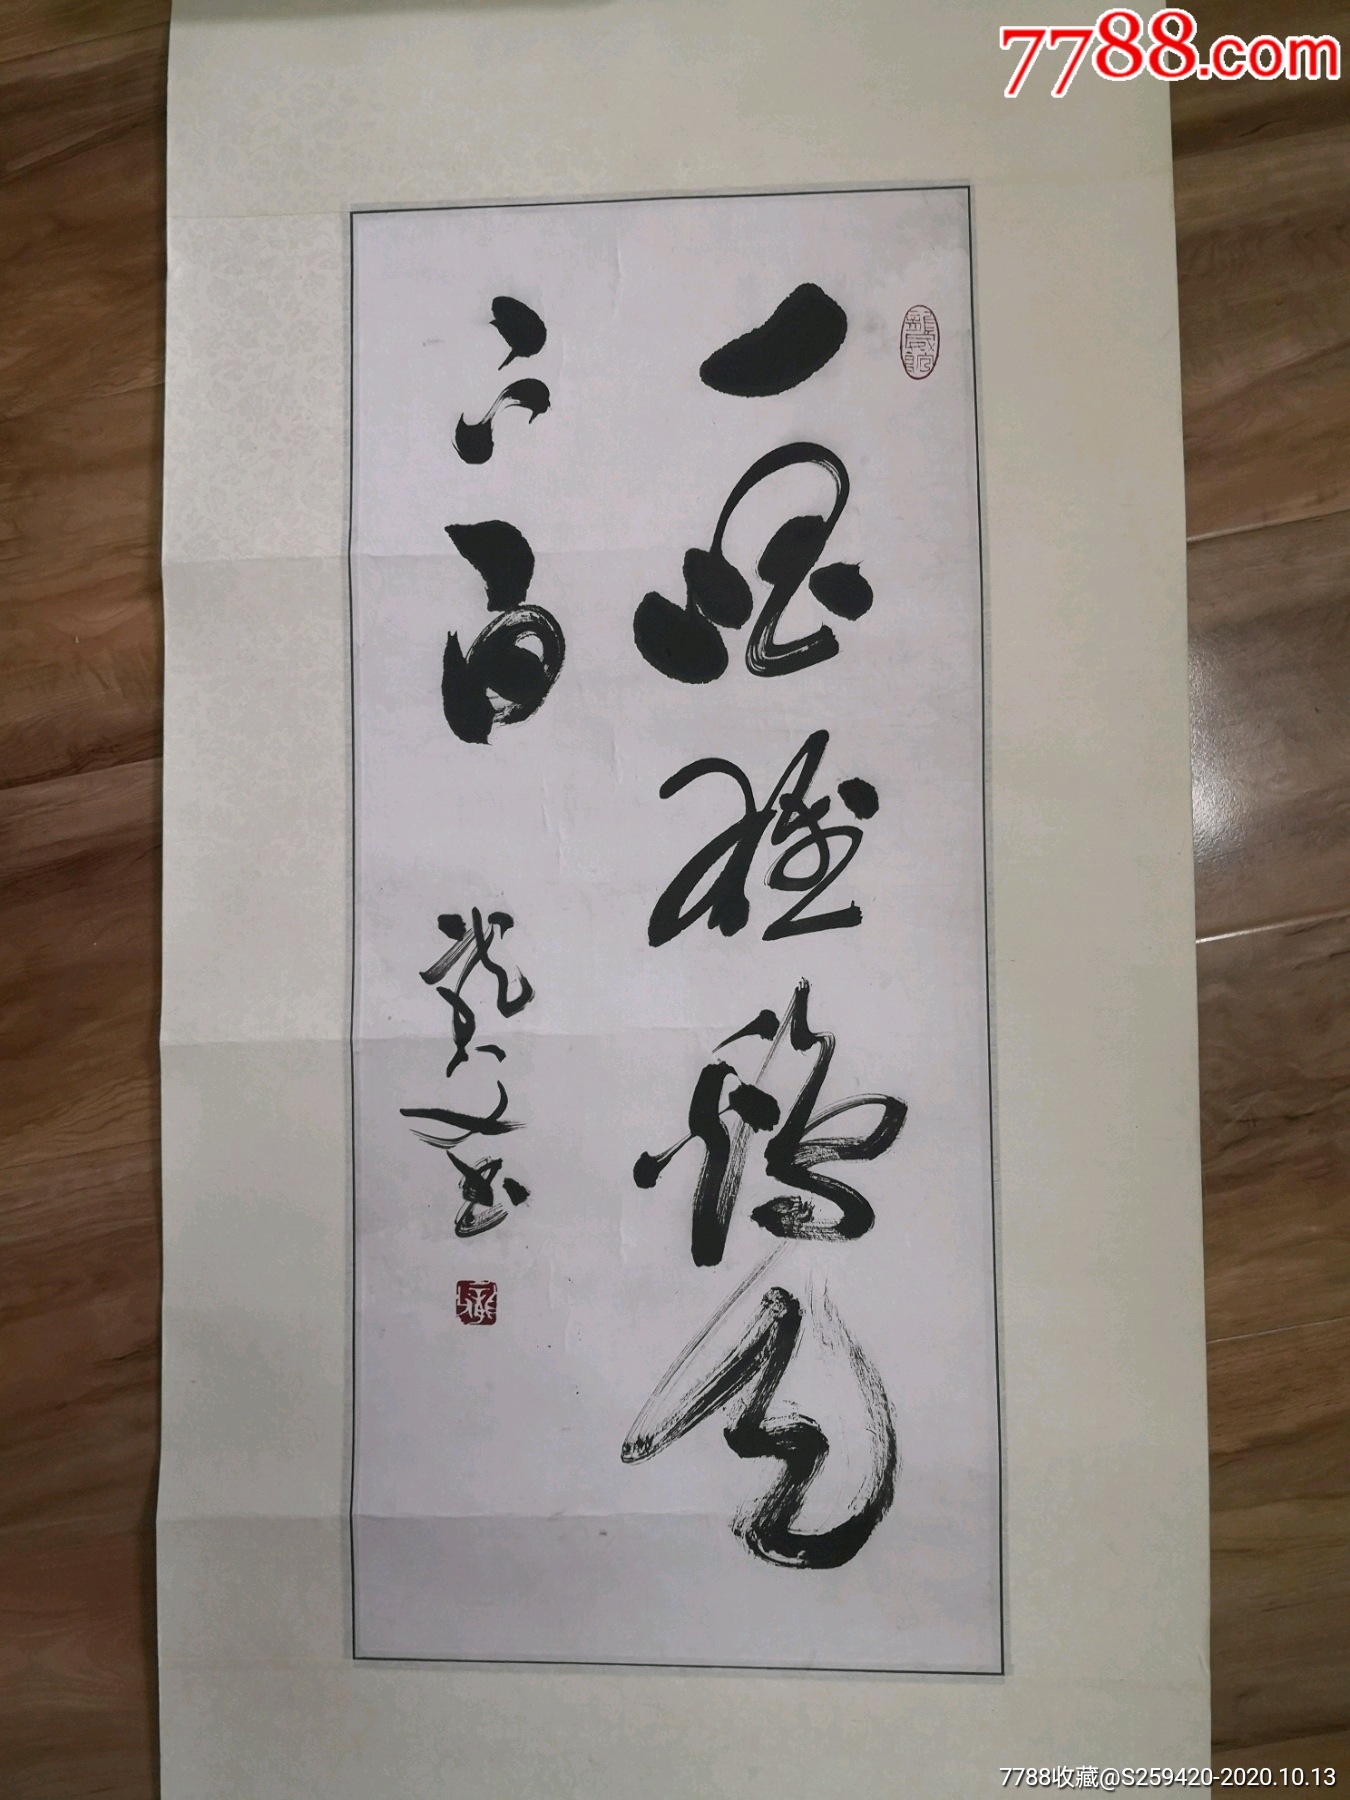 7788.com
一唱雄鸡天
下白
书
7788收藏@S259420-2020.10.13